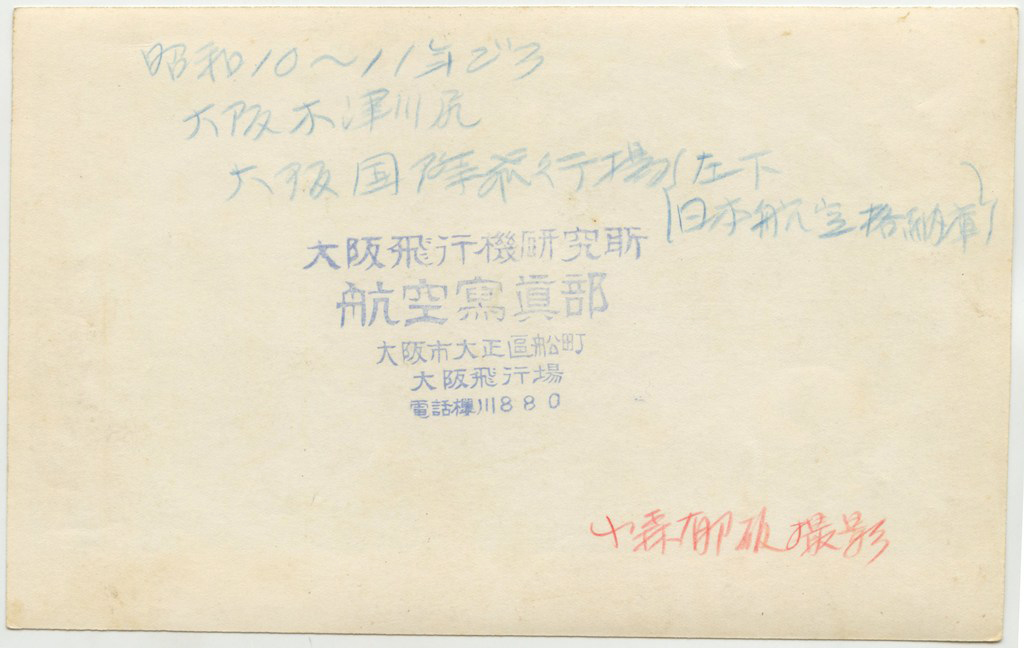 昭和10〜11年ごろ
大阪木津川尻
大阪国際飛行場(左下
日本航空格納庫)
大阪飛行機研究所
航空寫眞部
大阪市大正區船町
大阪飛行場
電話櫻川880
小森郁 撮影